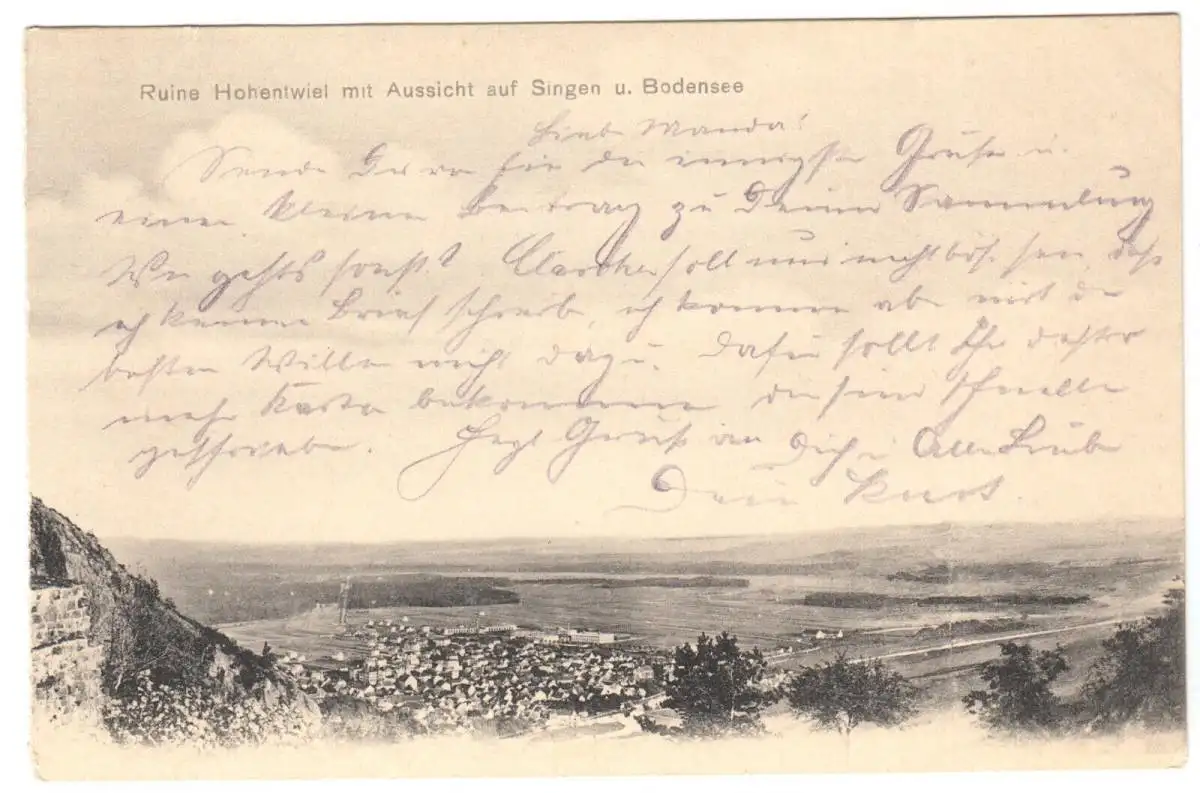 Ruine Hohentwiel mit Aussicht auf Singen u. Bodensee
Lieb Wanda!
Sende Dir die innigste Grüße u.
einen kleinen Beitrag zu Deiner Sammlung
Wie gehts sonst? soll mir nicht bös sein, daß
ich keinen Brief schreibe, ich komme aber mit dem
besten Willen nicht dazu. Dafür sollt Ihr desto
mehr Karten bekommen die sind schneller
geschrieben. Herzl Gruß an Dich u Alle Lieben
Dein Kurt